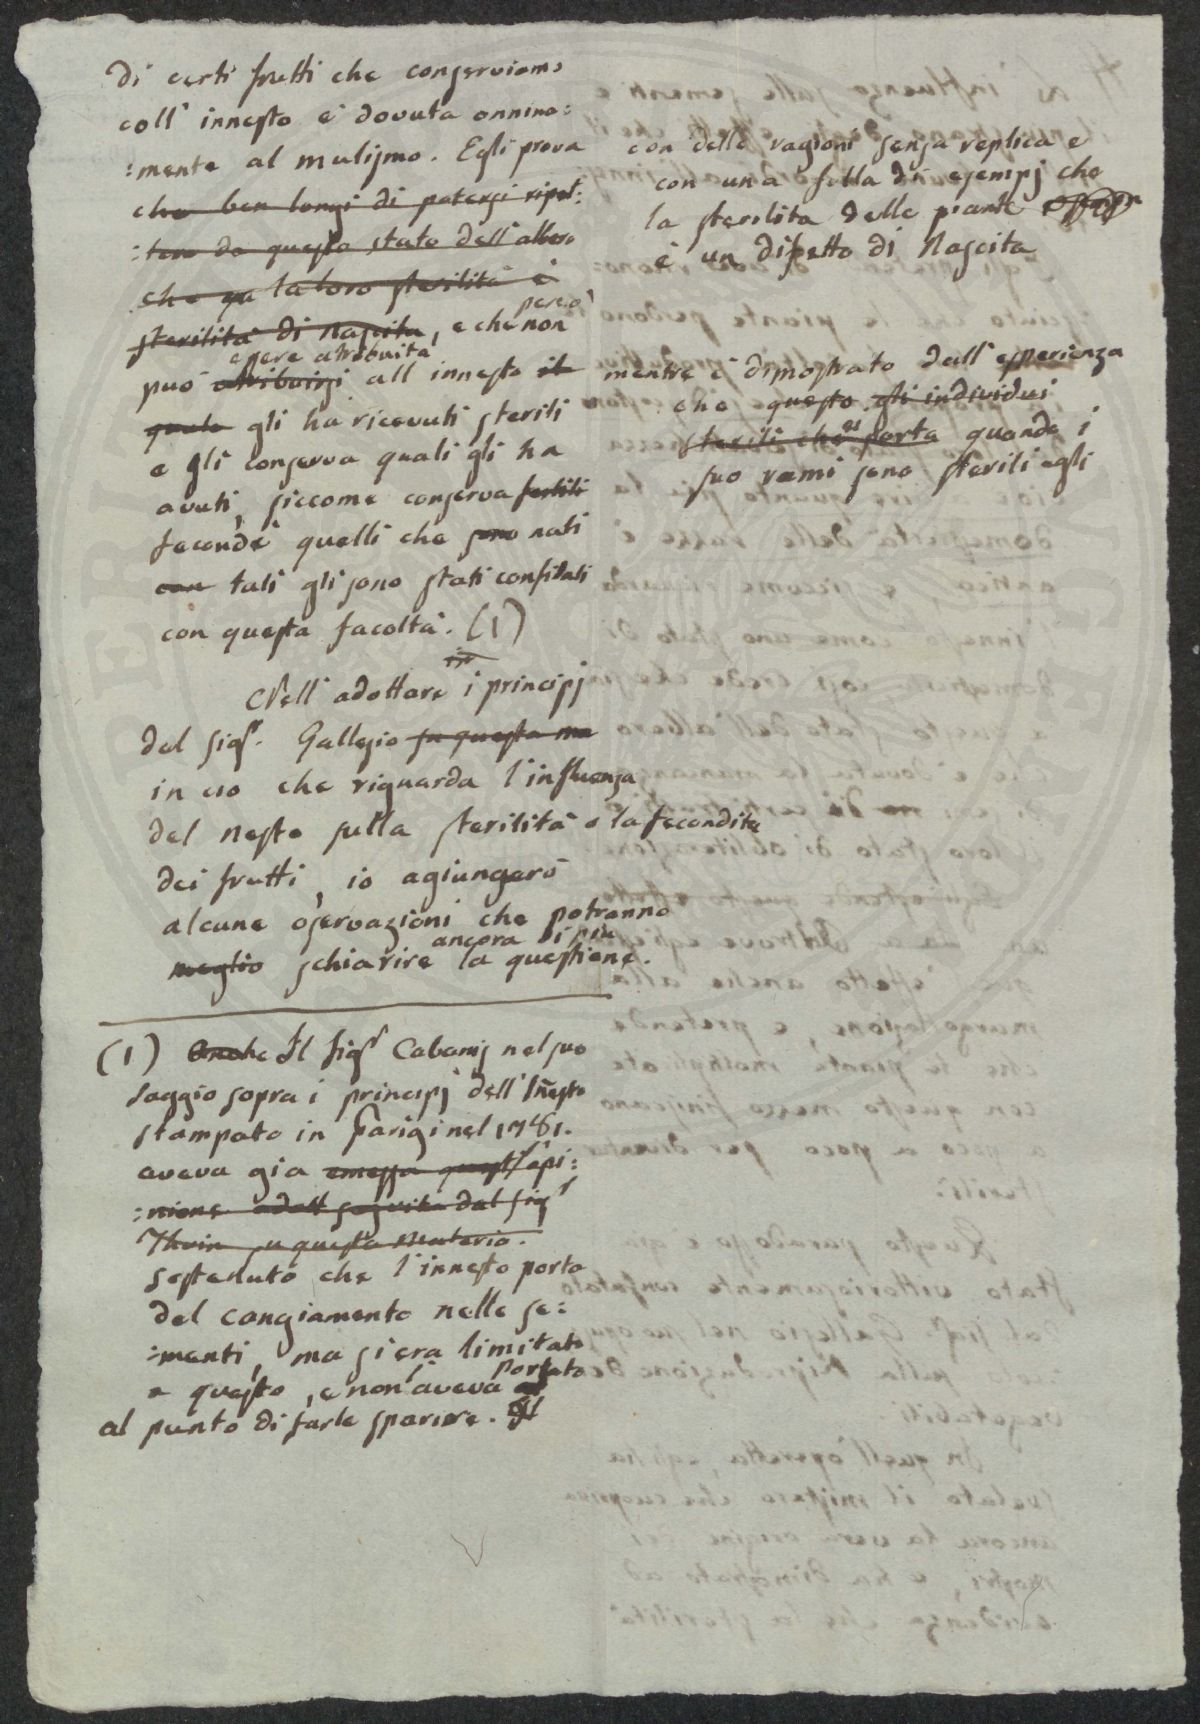 di certi frutti che conserviamo
coll' innesto è dovuta onnina:
:mente al mulismo. Egli prova
che ben lungi di potersi ripet:
:tere da questo stato dell'albero
che qu la loro sterilità è
sterilità di Nascita, e che non però
essere atribuita
può attribuirsi all' innesto il
quale gli ha ricevuti sterili
e gli conserva quali gli ha
avuti, siccome conserva fertili
fecondi quelli che sono nati
con tali gli sono stati confidati
con questa facoltà. (1)
Nell' adottare i principj
del sigr. Gallesio su questa ma
in ciò che riguarda l'influenza
del nesto sulla sterilità o la fecondità
dei frutti, io agiungerò
alcune osservazioni che potranno
ancora di più
meglio schiarire la questione.
con delle ragioni senza replica e
con una folla di esempj che
la sterilità delle piante
è un difetto di Nascita
mentre è dimostrato dall' esperienza
che questo gli individui
sterili che es porta quando i
suo rami sono sterili egli
(1) Anche Il Sigr Cabanis nel suo
saggio sopra i principj dell' Innesto
stampato in Parigi nel 1781.
aveva gia emessa quest' opi:
:nione adott seguita dal sigr
Thoin su questa materia.
sostenuto che l'innesto porta
del cangiamento nelle se:
:menti, ma si era limitato
a questo, e non l'aveva portato
al punto di farle sparire.